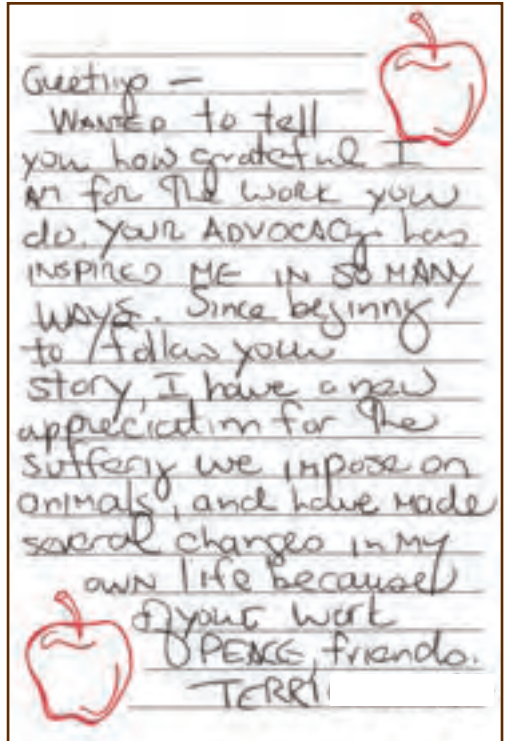 Greetings —
WANTED to tell
you how grateful I
AM for the work you
do. Your ADVOCACY has
INSPIRED ME IN SO MANY
WAYS. Since beginning
to follow your
story, I have a new
appreciation for the
suffering we impose on
animals, and have made
several changes in my
own life because
of your work
PEACE, friends.
TERRI